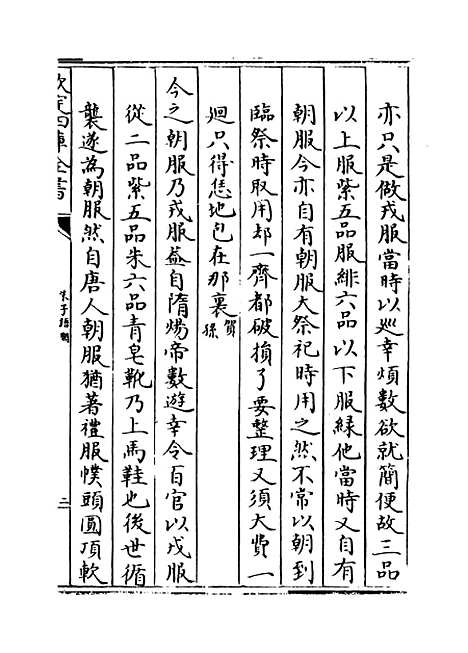 亦只是做戎服當時以巡幸煩數欲就簡便故三品
以上服紫五品服緋六品以下服緑他當時又自有
朝服今亦自有朝服大祭祀時用之然不常以朝到
臨祭時取用却一齊都破損了要整理又須大費一
廻只得恁地包在那裏賀孫
今之朝服乃戎服蓋自隋煬帝數遊幸令百官以戎服
從二品紫五品朱六品青皂靴乃上馬鞋也後世循
襲遂為朝服然自唐人朝服猶著禮服幞頭圓頂軟
欽定四庫全書
朱子語類
二